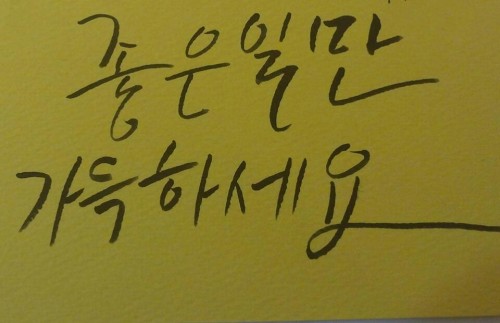 좋은일만
가득하세요